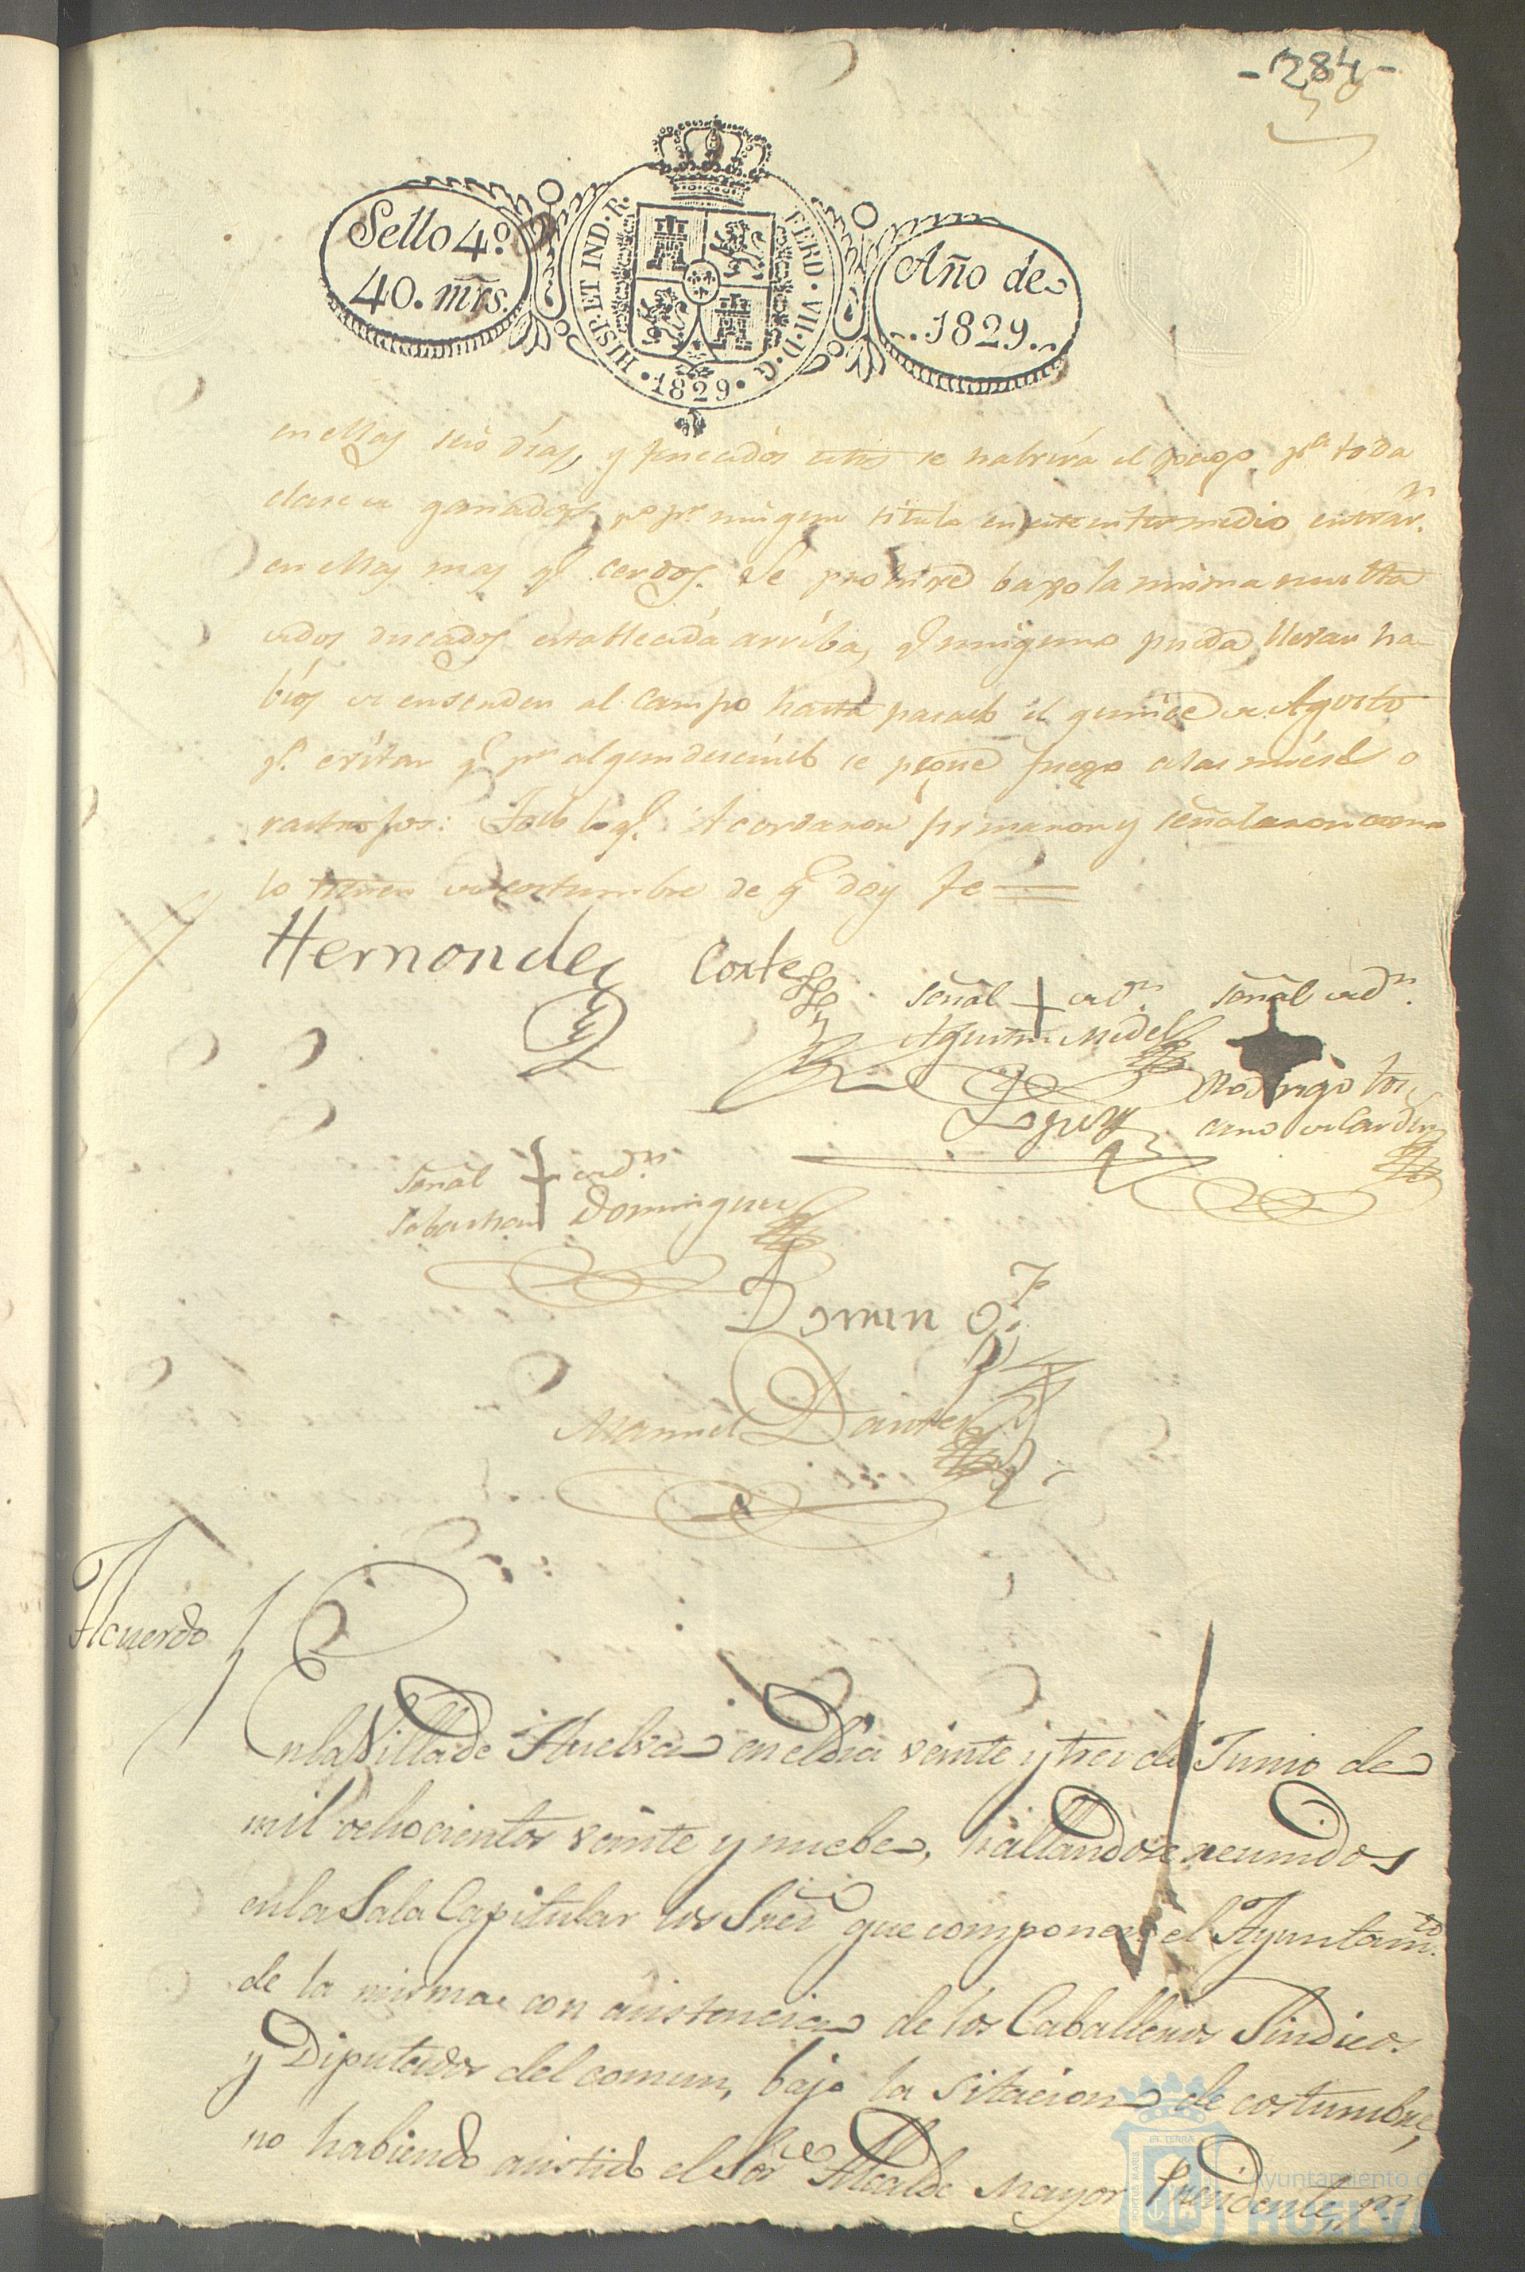 -284-
Sello 4º
40. mrs.
HISP. ET IND. R. FERD. VII. D. G.
1829
Año de
1829
en ellas seis días, y fenecidos estos se habrirá el pago pª toda
clase de ganados, pº pr ninguna titulo en este intermedio entrar
en ellas mas q cerdos. Se prohive bajo la misma multa
de dos ducados establecida arriba, q ninguno pueda llevar ha
bios de ensender al campo hasta pasado el quince de Agosto
pª evitar q pr algun descuido se pegue fuego a las mieses o
rastrojos: Todo lo q Acordaron firmaron y señalaron como
lo tienen de costumbre de q doy fe
Hernandez Cortes
señal de Dn señal de Dn
Agustin Medel
Rodrigo
señal de Dn
Sebastian Dominguez
Manuel
Acuerdo
En la Villa de Huelva en el dia veinte y tres de Junio de
mil ochocientos veinte y nuebe, hallandose reunidos
en la Sala Capitular los Sres que componen el Ayuntamto
de la misma con asistencia de los Caballeros Sindicos
y Diputados del comun, bajo la sitacion de costumbre,
no habiendo asistido el Sor Alcalde Mayor Presidente, pr
Ayuntamiento de
HUELVA